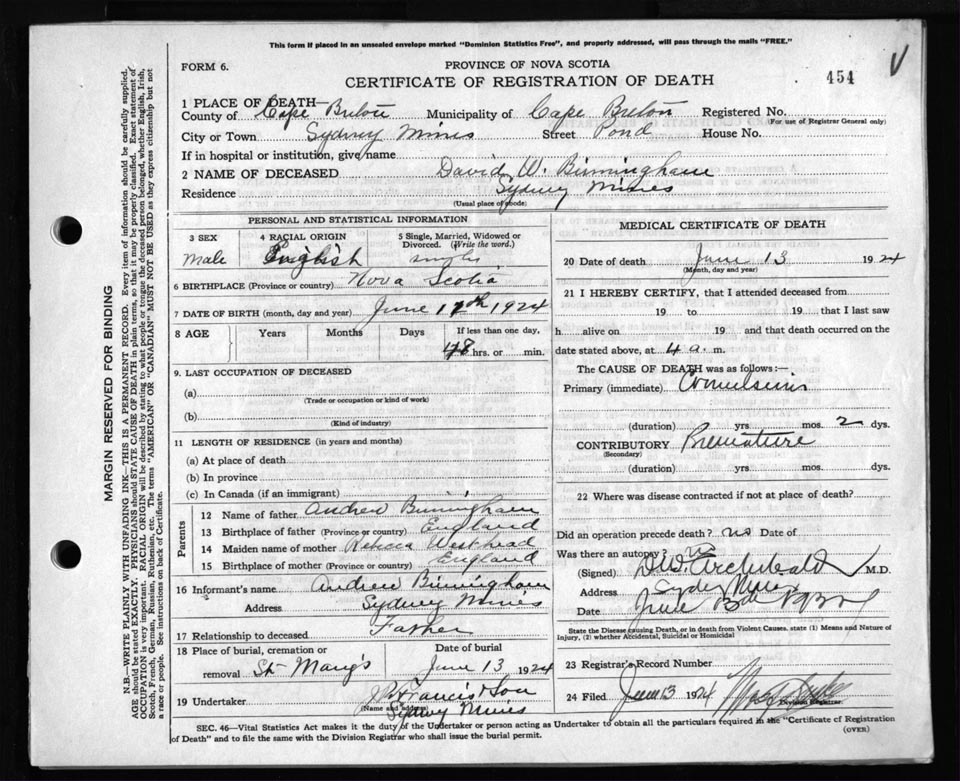 This form if placed in an unsealed envelope marked "Dominion Statistics Free", and properly addressed, will pass through the mails "FREE."
FORM 6.
PROVINCE OF NOVA SCOTIA
CERTIFICATE OF REGISTRATION OF DEATH
454
1 PLACE OF DEATH—
County of Cape Breton Municipality of Cape Breton Registered No.
(For use of Registrar General only)
City or Town Sydney Mines Street Pond House No.
If in hospital or institution, give name
2 NAME OF DECEASED David W. Birmingham
Residence Sydney Mines
(Usual place of abode)
PERSONAL AND STATISTICAL INFORMATION
3 SEX
Male
4 RACIAL ORIGIN
English
5 Single, Married, Widowed or Divorced. (Write the word.)
single
6 BIRTHPLACE (Province or country) Nova Scotia
7 DATE OF BIRTH (month, day and year) June 1924
8 AGE Years Months Days If less than one day,
48 hrs. or min.
9. LAST OCCUPATION OF DECEASED
(a)
(Trade or occupation or kind of work)
(b)
(Kind of industry)
11 LENGTH OF RESIDENCE (in years and months)
(a) At place of death
(b) In province
(c) In Canada (if an immigrant)
Parents
12 Name of father Andrew Birmingham
13 Birthplace of father (Province or country) England
14 Maiden name of mother Rebecca Westhead
15 Birthplace of mother (Province or Country) England
16 Informant's name Andrew Birmingham
Address Sydney Mines
17 Relationship to deceased Father
18 Place of burial, cremation or removal St Mary's
Date of burial
June 13 1924
19 Undertaker J. Francis & Son
(Name and address) Sydney Mines
MEDICAL CERTIFICATE OF DEATH
20 Date of death June 13 1924
(Month, day and year)
21 I HEREBY CERTIFY, that I attended deceased from
19 to 19 that I last saw
h alive on 19 and that death occurred on
date stated above, at 4 a. m.
The CAUSE OF DEATH was as follows:—
Primary (immediate) Convulsions
(duration) yrs mos. 2 dys.
CONTRIBUTORY Premature
(Secondary)
(duration) yrs. mos. dys.
22 Where was disease contracted if not at place of death?
Did an operation precede death? no Date of
Was there an autopsy? no
(Signed) Archibald M.D.
Address Sydney Mines
Date June
State the Disease causing Death, or in death from Violent Causes. state (1) Means and Nature of
Injury, (2) whether Accidental, Suicidal or Homicidal
23 Registrar's Record Number
24 Filed June 13 1924
Division Registrar.
SEC. 46—Vital Statistics Act makes it the duty of the Undertaker or person acting as Undertaker to obtain all the particulars required in the "Certificate of Registration
of Death" and to file the same with the Division Registrar who shall issue the burial permit.
(OVER)
MARGIN RESERVED FOR BINDING
N.B.—WRITE PLAINLY WITH UNFADING INK—THIS IS A PERMANENT RECORD. Every item of information should be carefully supplied.
AGE should be stated EXACTLY. PHYSICIANS should STATE CAUSE OF DEATH in plain terms, so that it may be properly classified. Exact statement of
OCCUPATION is very important. RACIAL ORIGIN will be described by stating to what people or tongue the deceased person belonged, whether English, Irish,
Scotch, French, German, Russian, Ruthenian, etc. The terms "AMERICAN" OR "CANADIAN" MUST NOT BE USED as they express citizenship but not
a race or people. See instructions on back of Certificate.